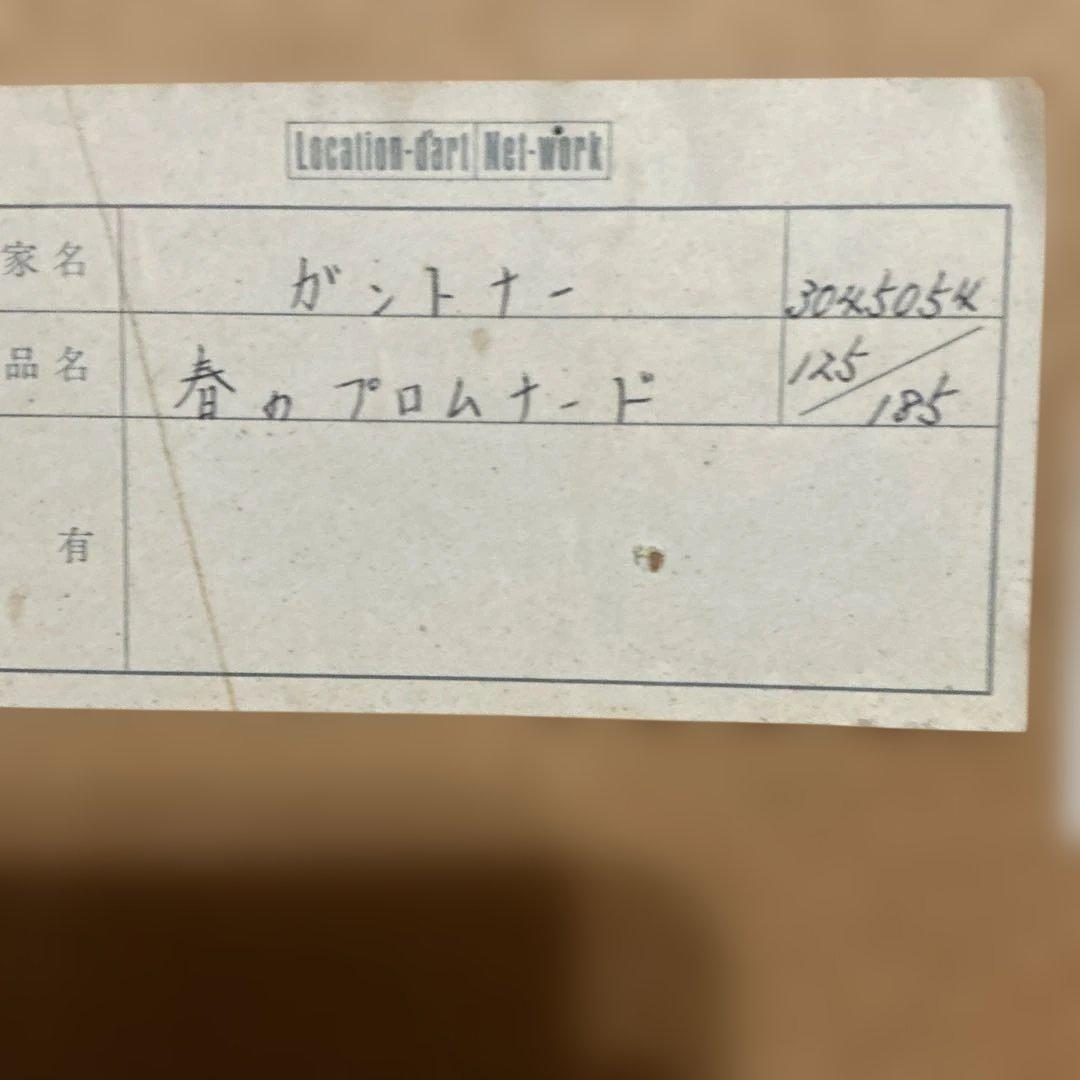 Location-d'art Net-work
家名 ガントナー
品名 春のプロムナード 125/185
有